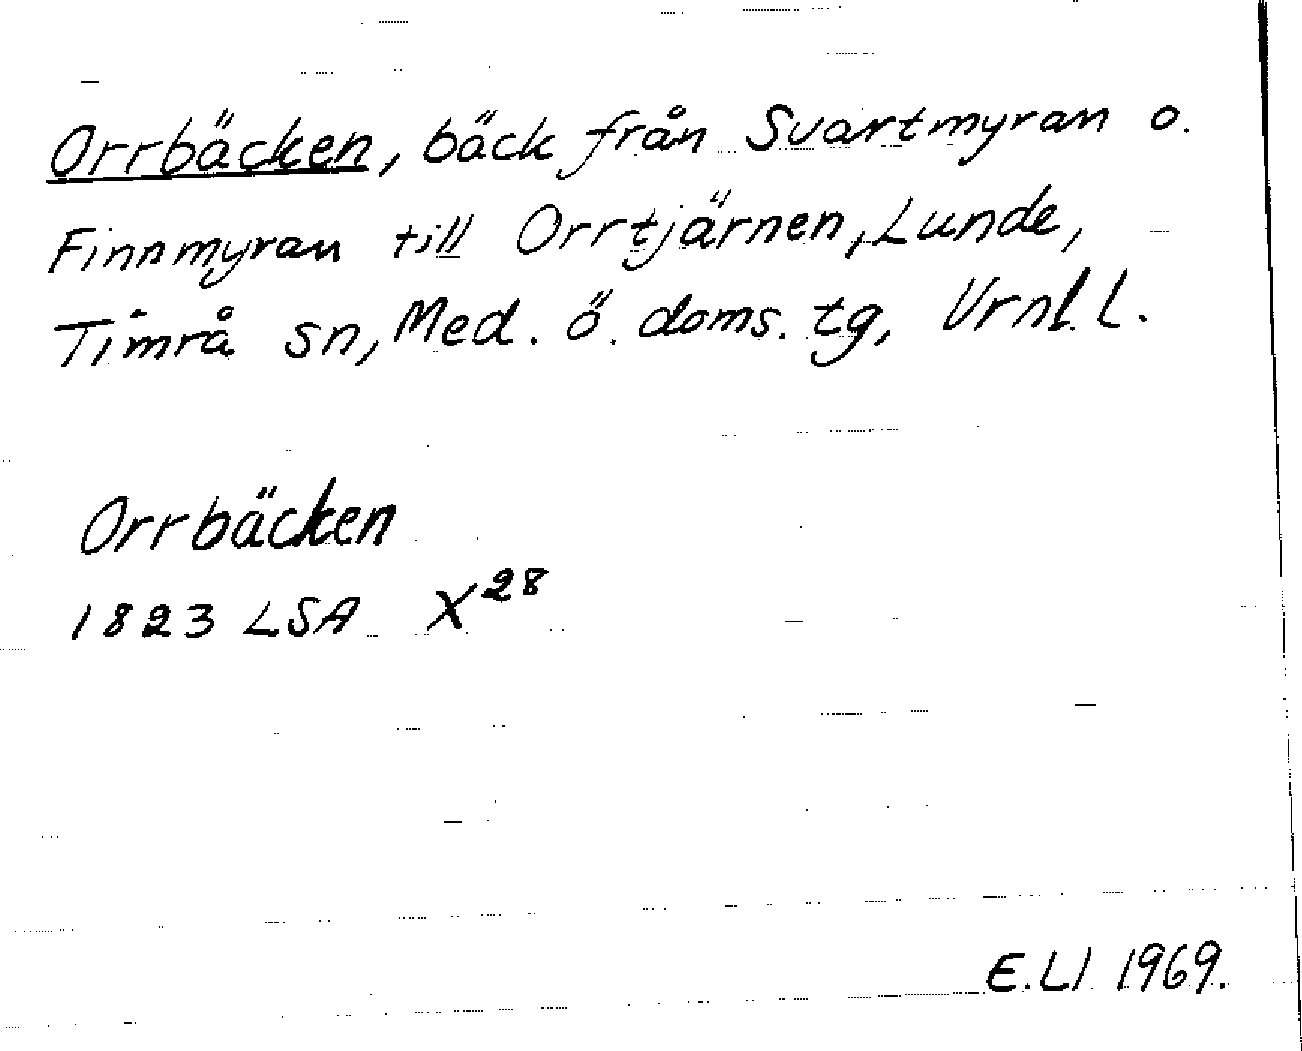 Orrbäcken, bäck från Svartmyran o.
Finnmyran till Orrtjärnen, Lunde,
Timrå sn, Med. ö. doms. tg, Vrnl. l.
Orrbäcken
1823 LSA X28
E.Ll 1969.